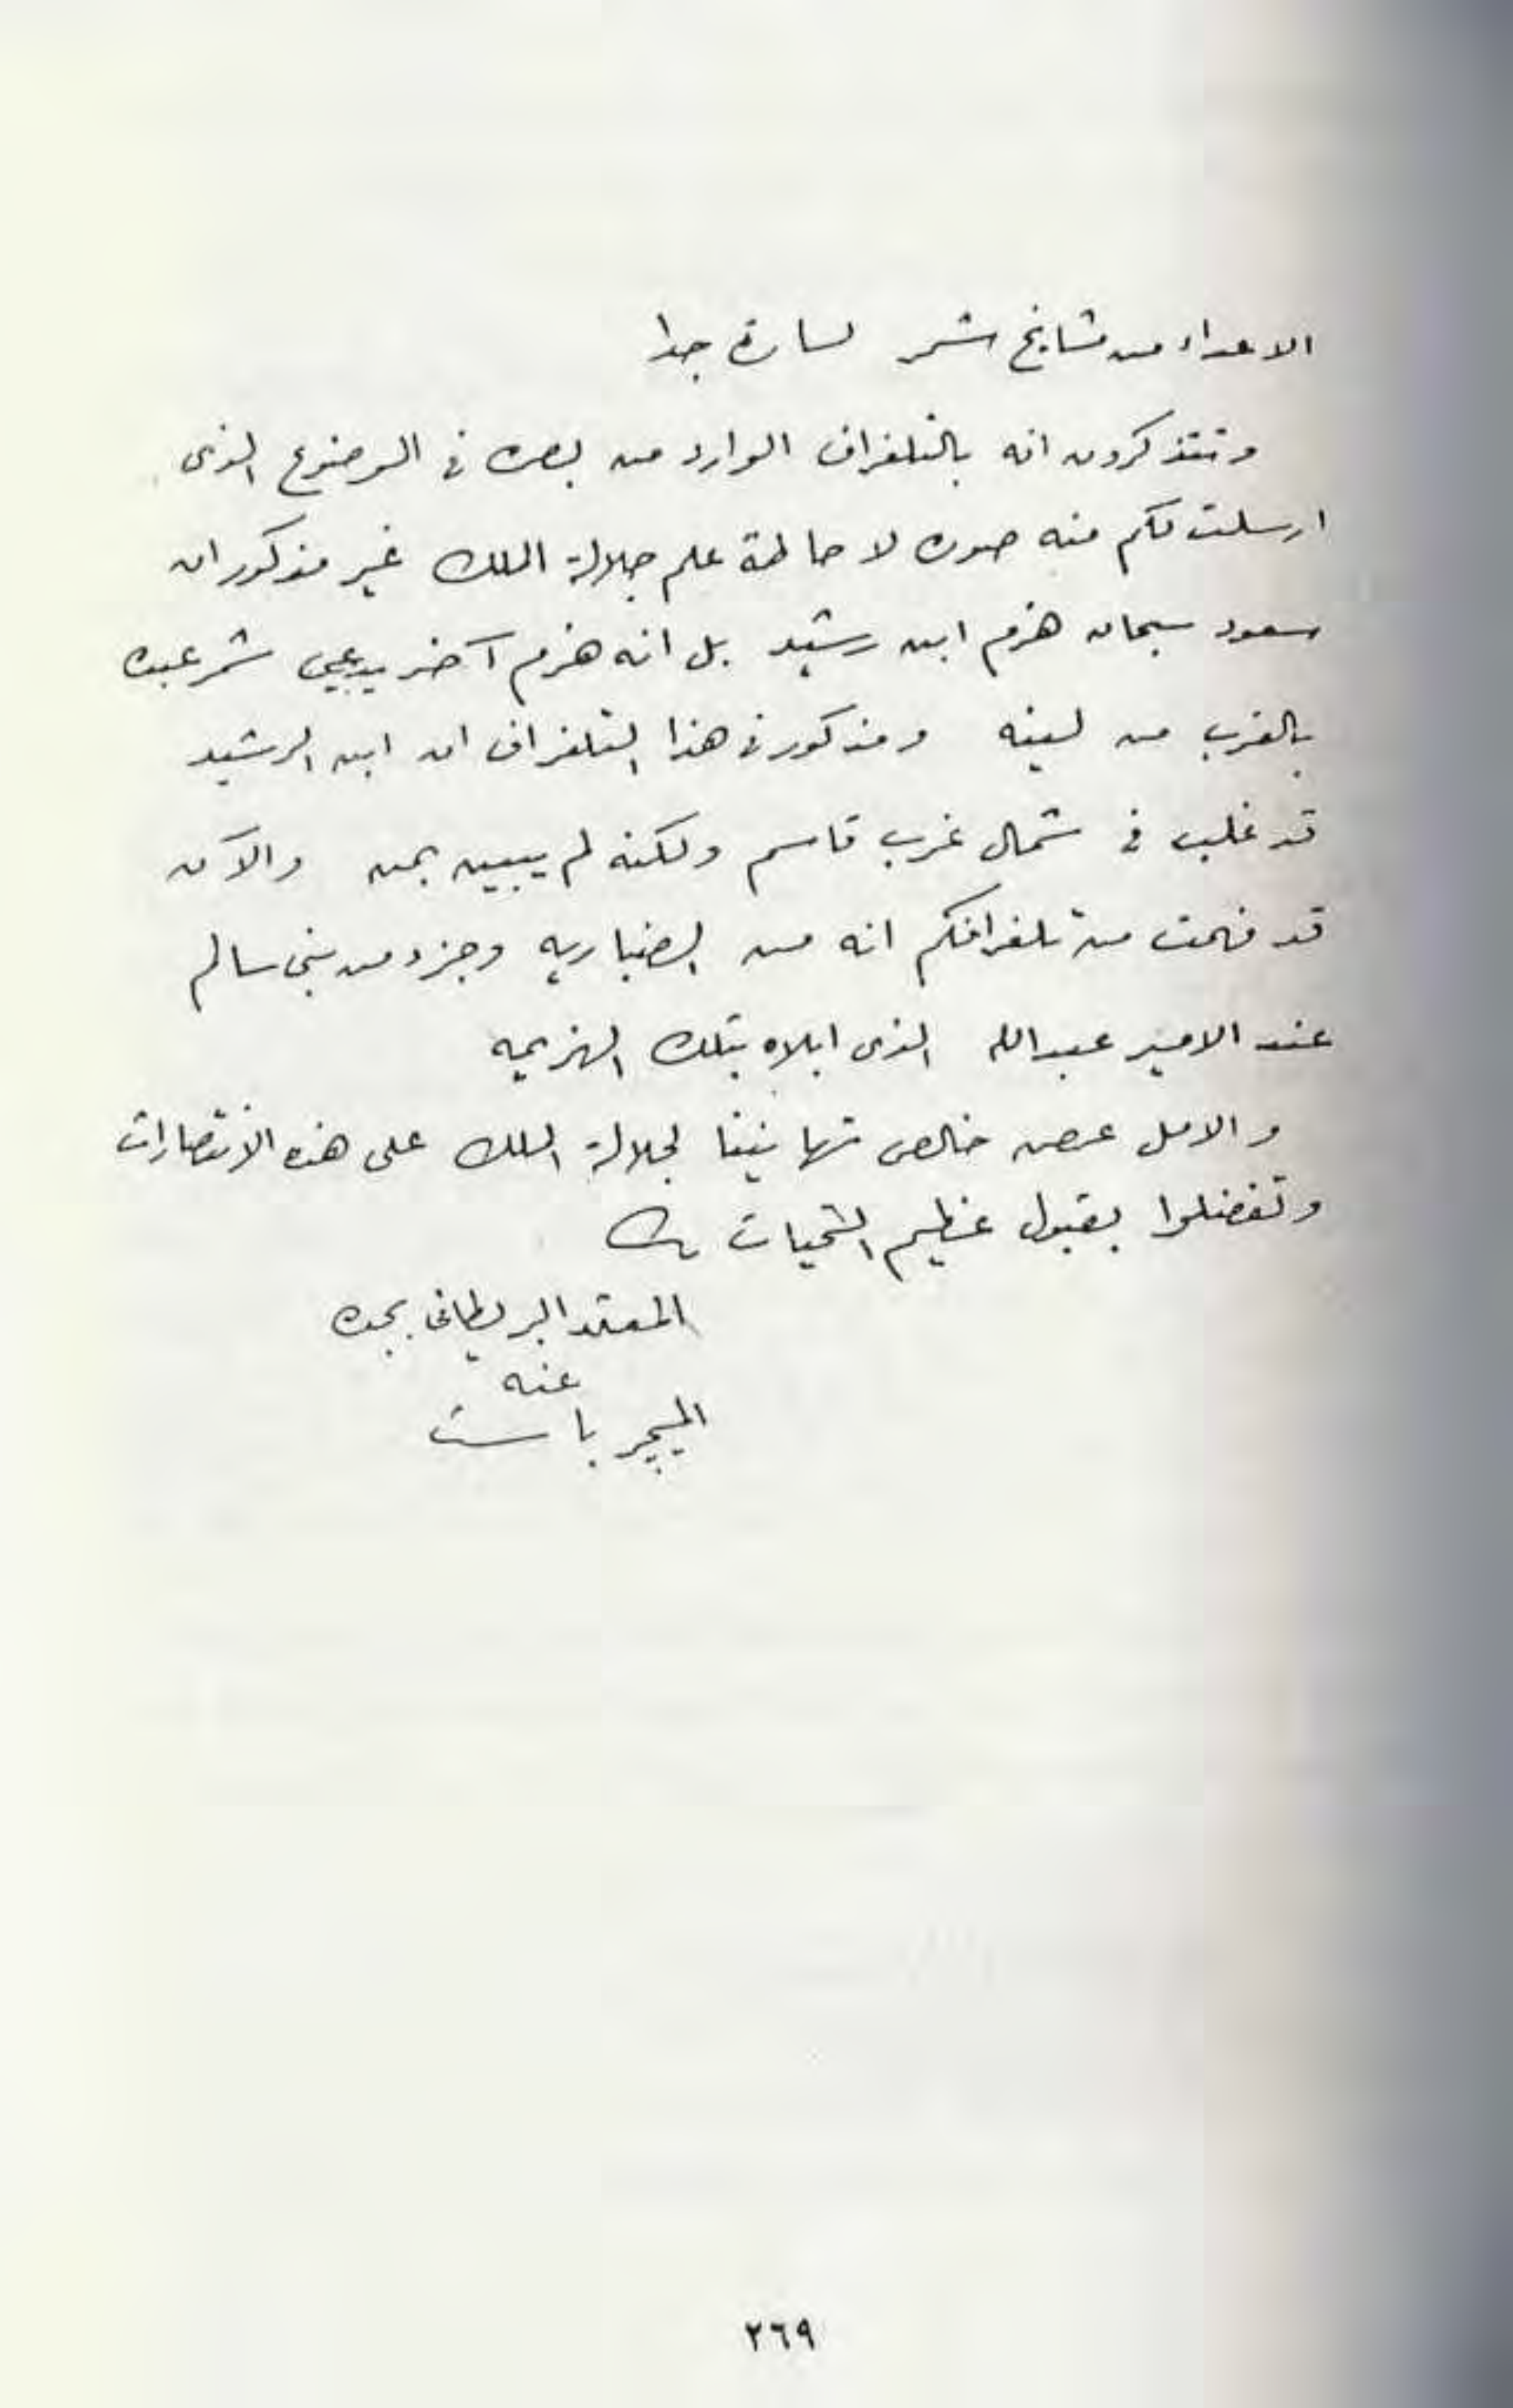 الاعداء من مشايخ شمر لسارة جدا
وتتذكرون انه بالتلغراف الوارد من بصره في الموضوع الذى
ارسلت لكم منه صوره لاحاطة علم جلالة الملك غير مذكور ان
سعود سبحان هزم ابن رشيد بل انه هزم آخر يدعي شمر عبده
بالقرب من لينه ومذكور في هذا التلغراف ان ابن الرشيد
قد غلب في شمال غرب قاسم ولكنه لم يبين بمن والآن
قد فهمت من تلغرافكم انه من وجزء من بني سالم
عند الامير عبدالله الذى ابلاه بتلك الهزيمه
والامل عرض خالص تهانينا لجلالة الملك على هذه الانتصارات
وتفضلوا بقبول عظيم التحيات
المعتمد البريطاني بجده
عنه
الميجر باست
٢٦٩